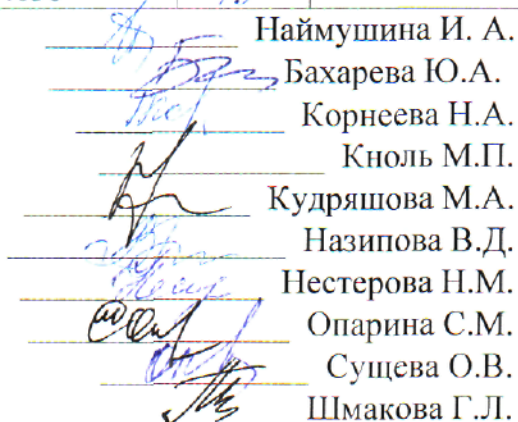 Наймушина И. А.
Бахарева Ю.А.
Корнеева Н.А.
Кноль М.П.
Кудряшова М.А.
Назипова В.Д.
Нестерова Н.М.
Опарина С.М.
Сущева О.В.
Шмакова Г.Л.